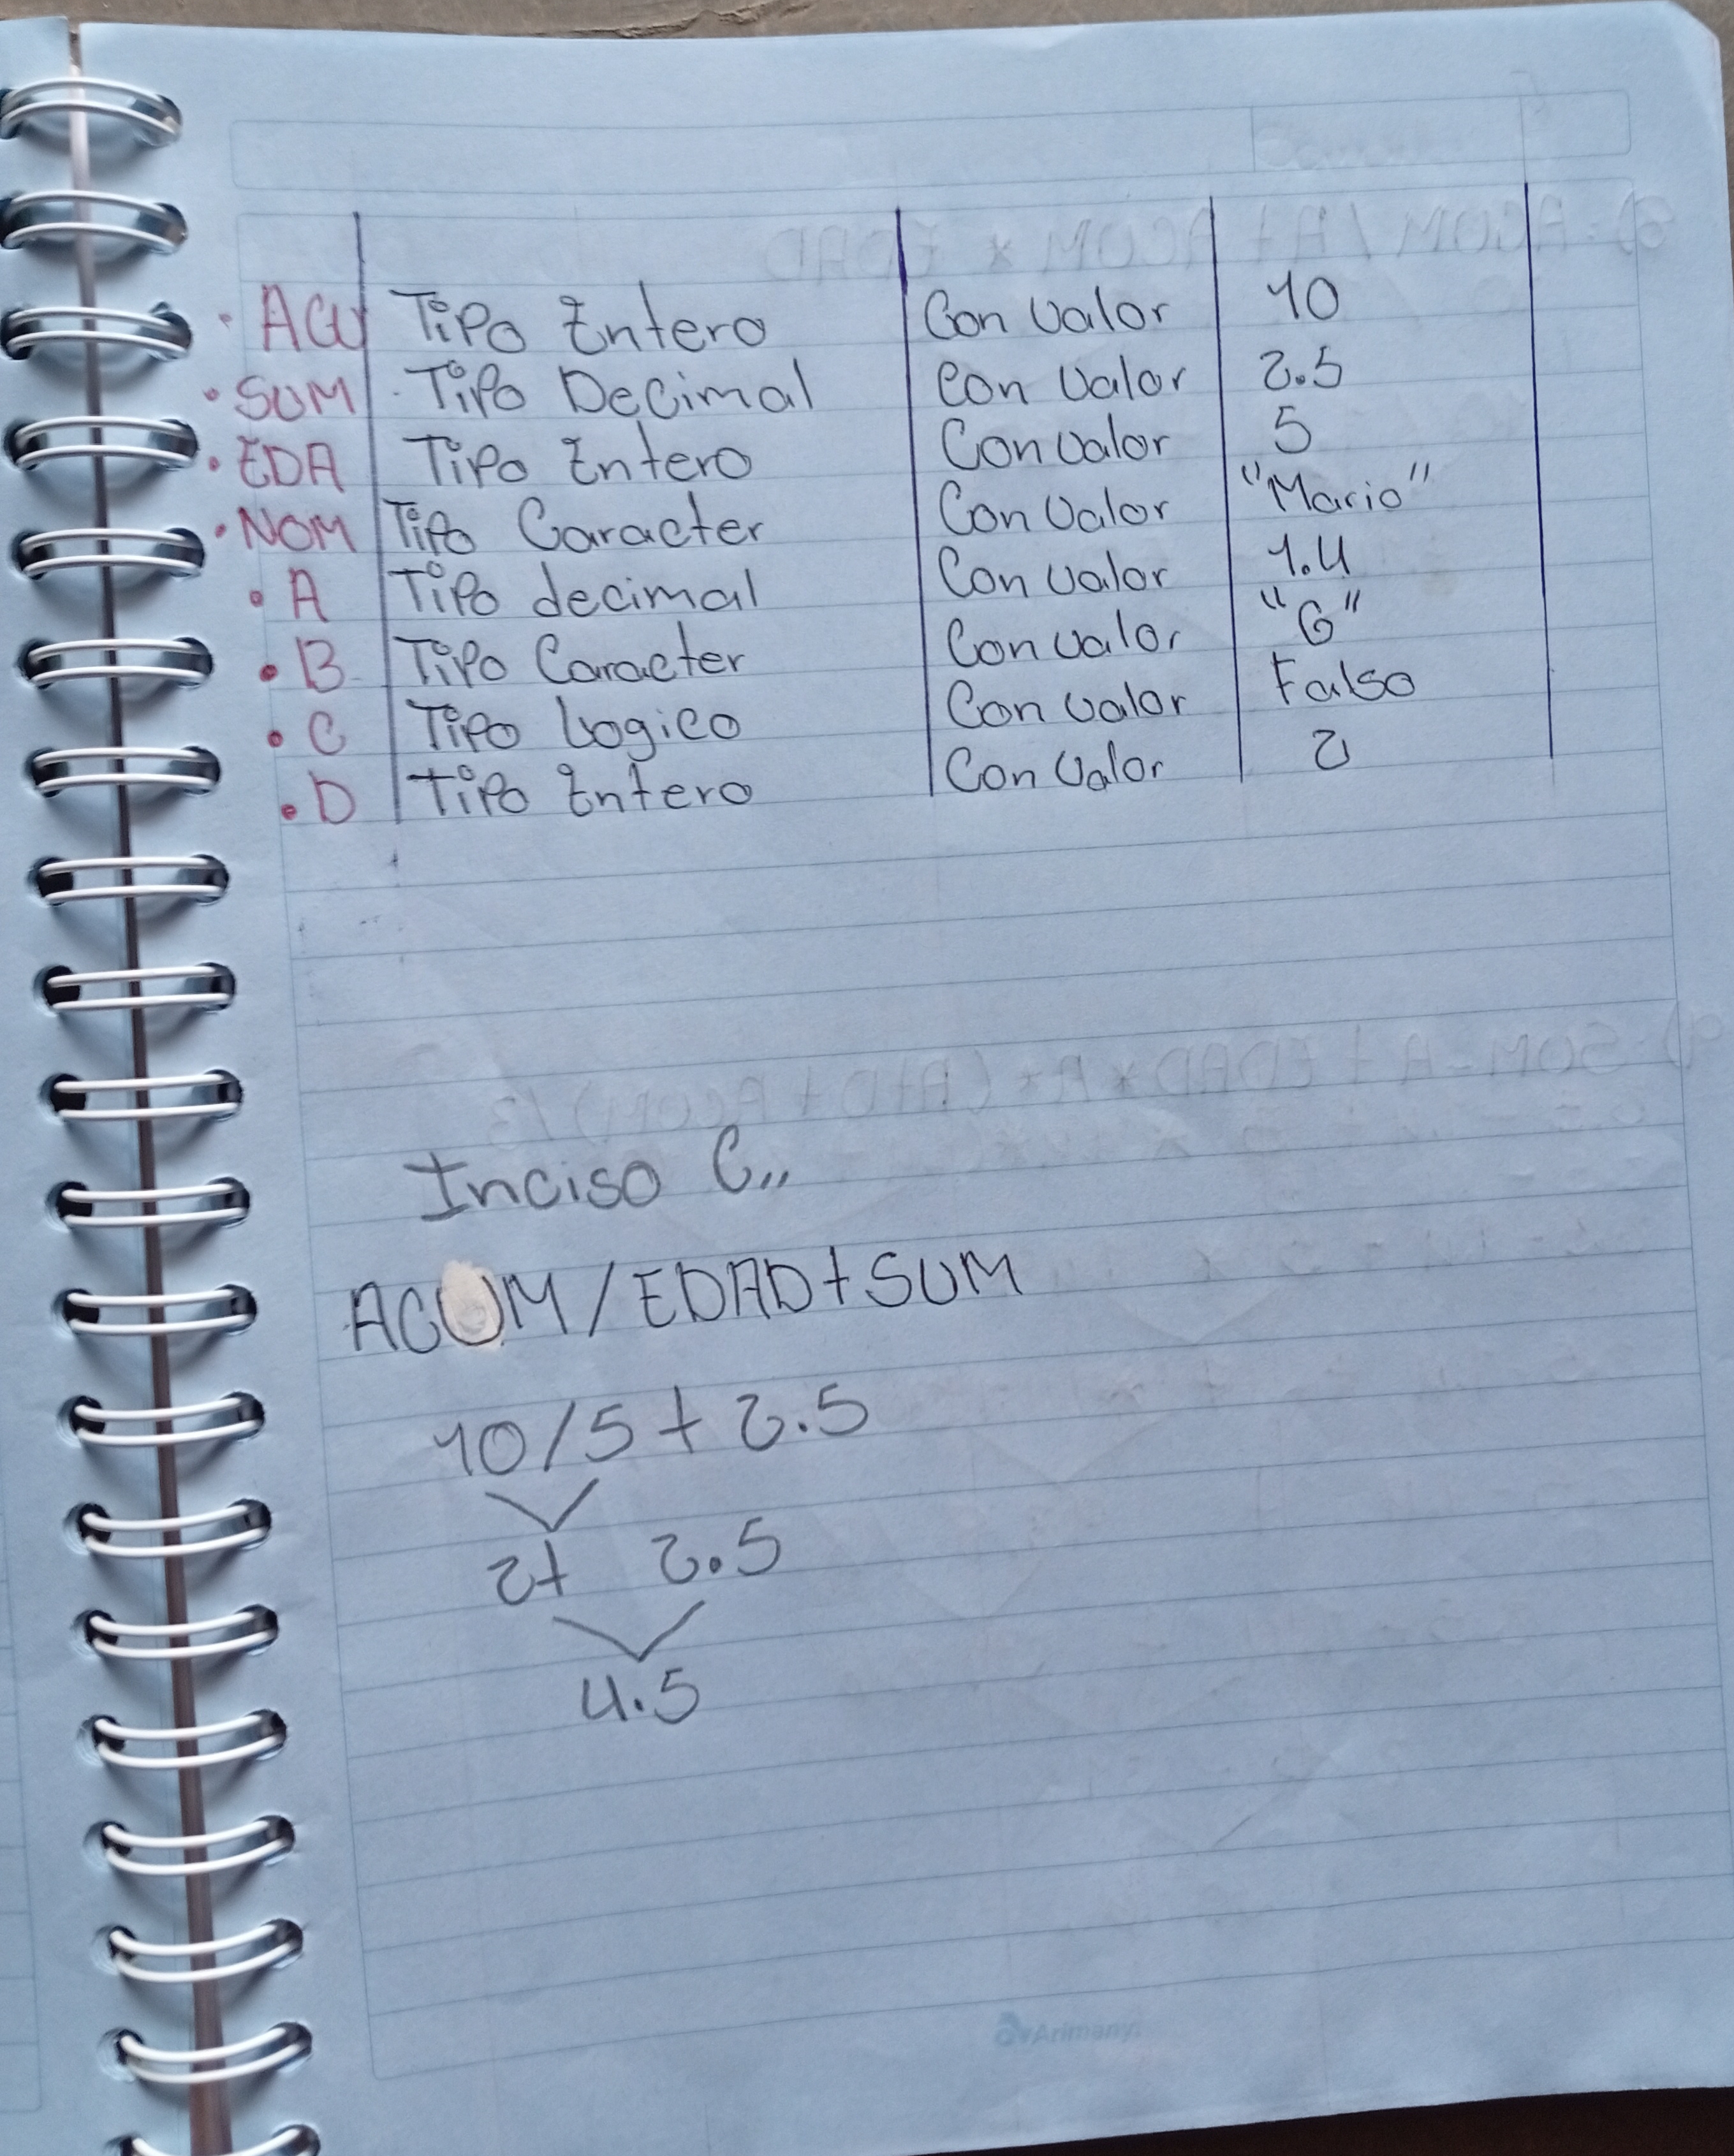 • ACU Tipo Entero Con valor 10
• SUM Tipo Decimal Con valor 2.5
• EDA Tipo Entero Con valor 5
• NOM Tipo Caracter Con valor "Mario"
• A Tipo decimal Con valor 1.4
• B Tipo Caracter Con valor "G"
• C Tipo Logico Con valor Falso
• D Tipo Entero Con valor 2
Inciso C,,
ACUM/EDAD+SUM
10/5+2.5
2+ 2.5
4.5
Arimany